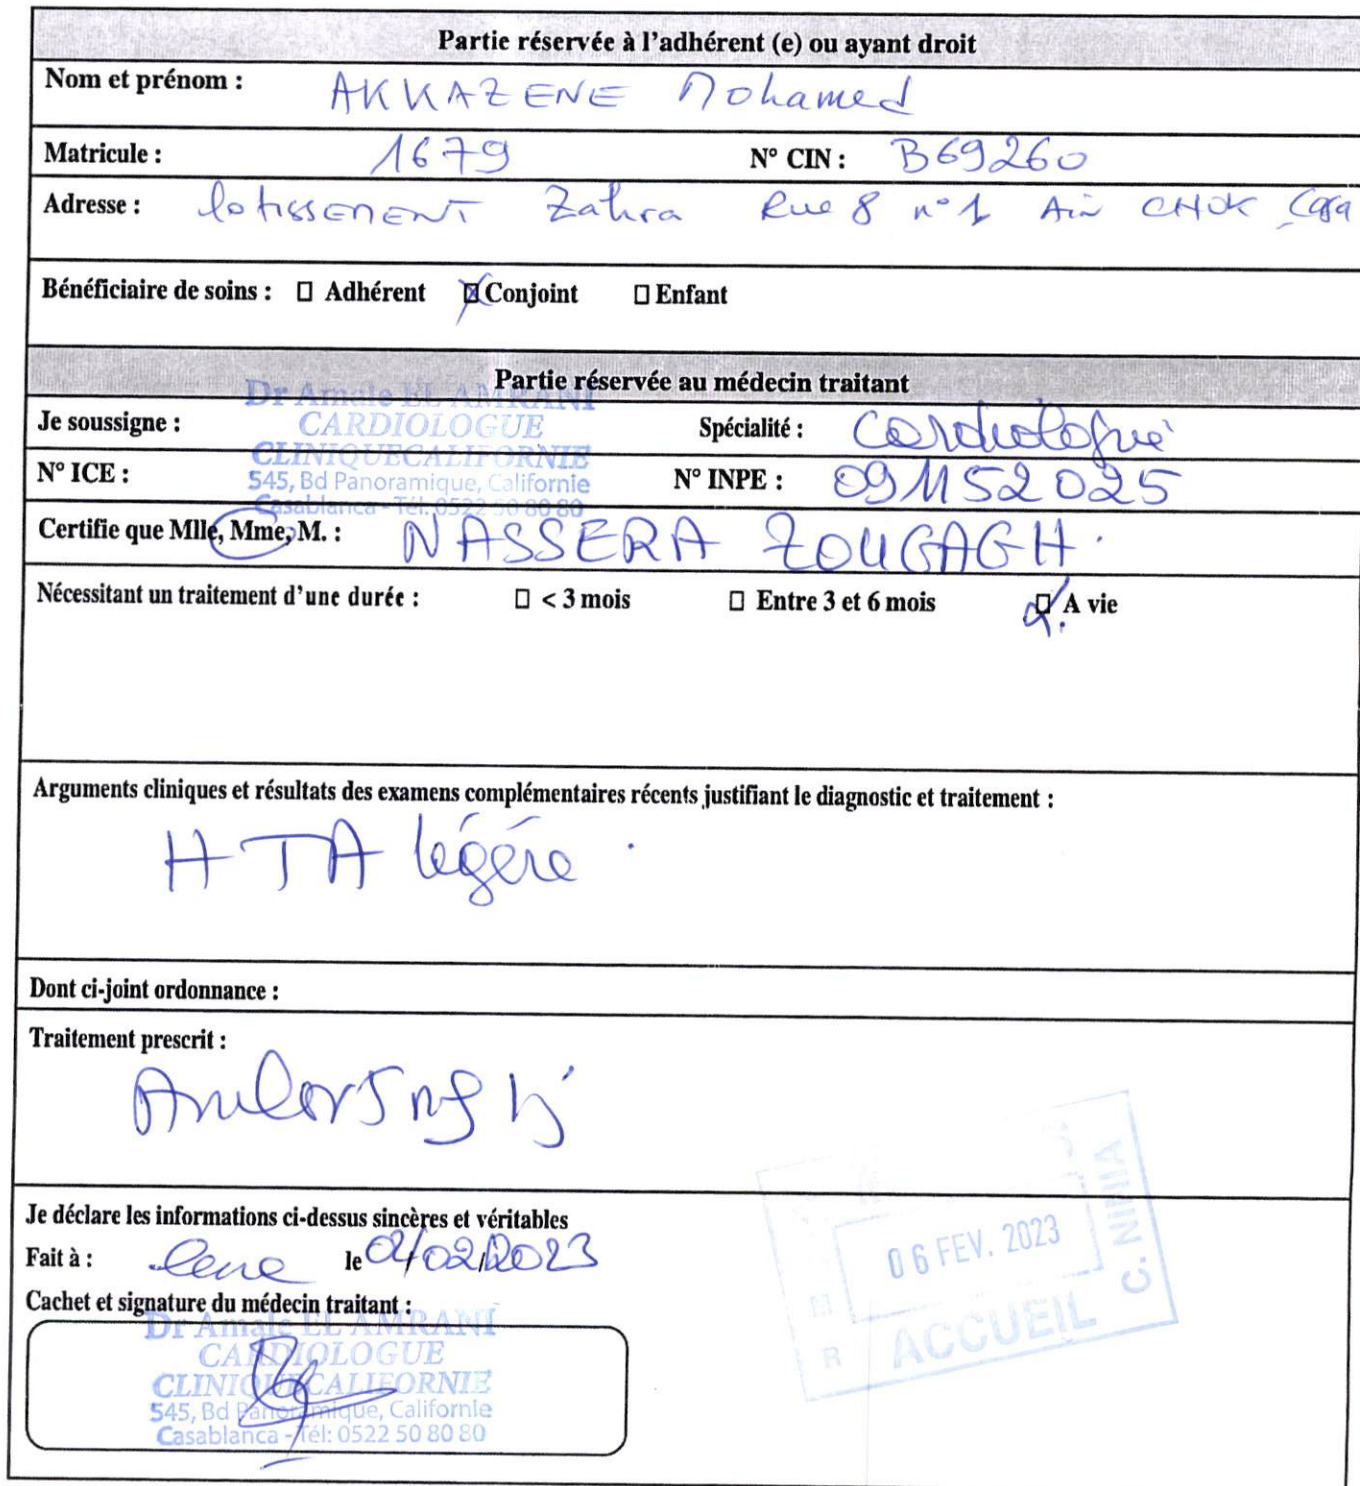 Partie réservée à l'adhérent (e) ou ayant droit
Nom et prénom : AKKAZENE Mohamed
Matricule : 1679 N° CIN : B69260
Adresse : lotissEMENT Zahra Rue 8 n° 1 Ain CHOK Casa
Bénéficiaire de soins : □ Adhérent ☒ Conjoint □ Enfant
Partie réservée au médecin traitant
Dr Amale EL AMRANI
Je soussigne : CARDIOLOGUE Spécialité : Cardiologie
CLINIQUECALIFORNIE
N° ICE : 545, Bd Panoramique, Californie N° INPE : 091152025
Casablanca - Tél: 0522 50 80 80
Certifie que Mlle, Mme, M. : NASSERA ZOUGAGH.
Nécessitant un traitement d'une durée : □ < 3 mois □ Entre 3 et 6 mois ☑ A vie
Arguments cliniques et résultats des examens complémentaires récents justifiant le diagnostic et traitement :
HTA légère.
Dont ci-joint ordonnance :
Traitement prescrit :
Amlor 5 mg
Je déclare les informations ci-dessus sincères et véritables
Fait à : le 02/02/2023
Cachet et signature du médecin traitant :
Dr Amale EL AMRANI
CARDIOLOGUE
CLINIQUECALIFORNIE
545, Bd Panoramique, Californie
Casablanca - Tél: 0522 50 80 80
06 FEV. 2023
ACCUEIL